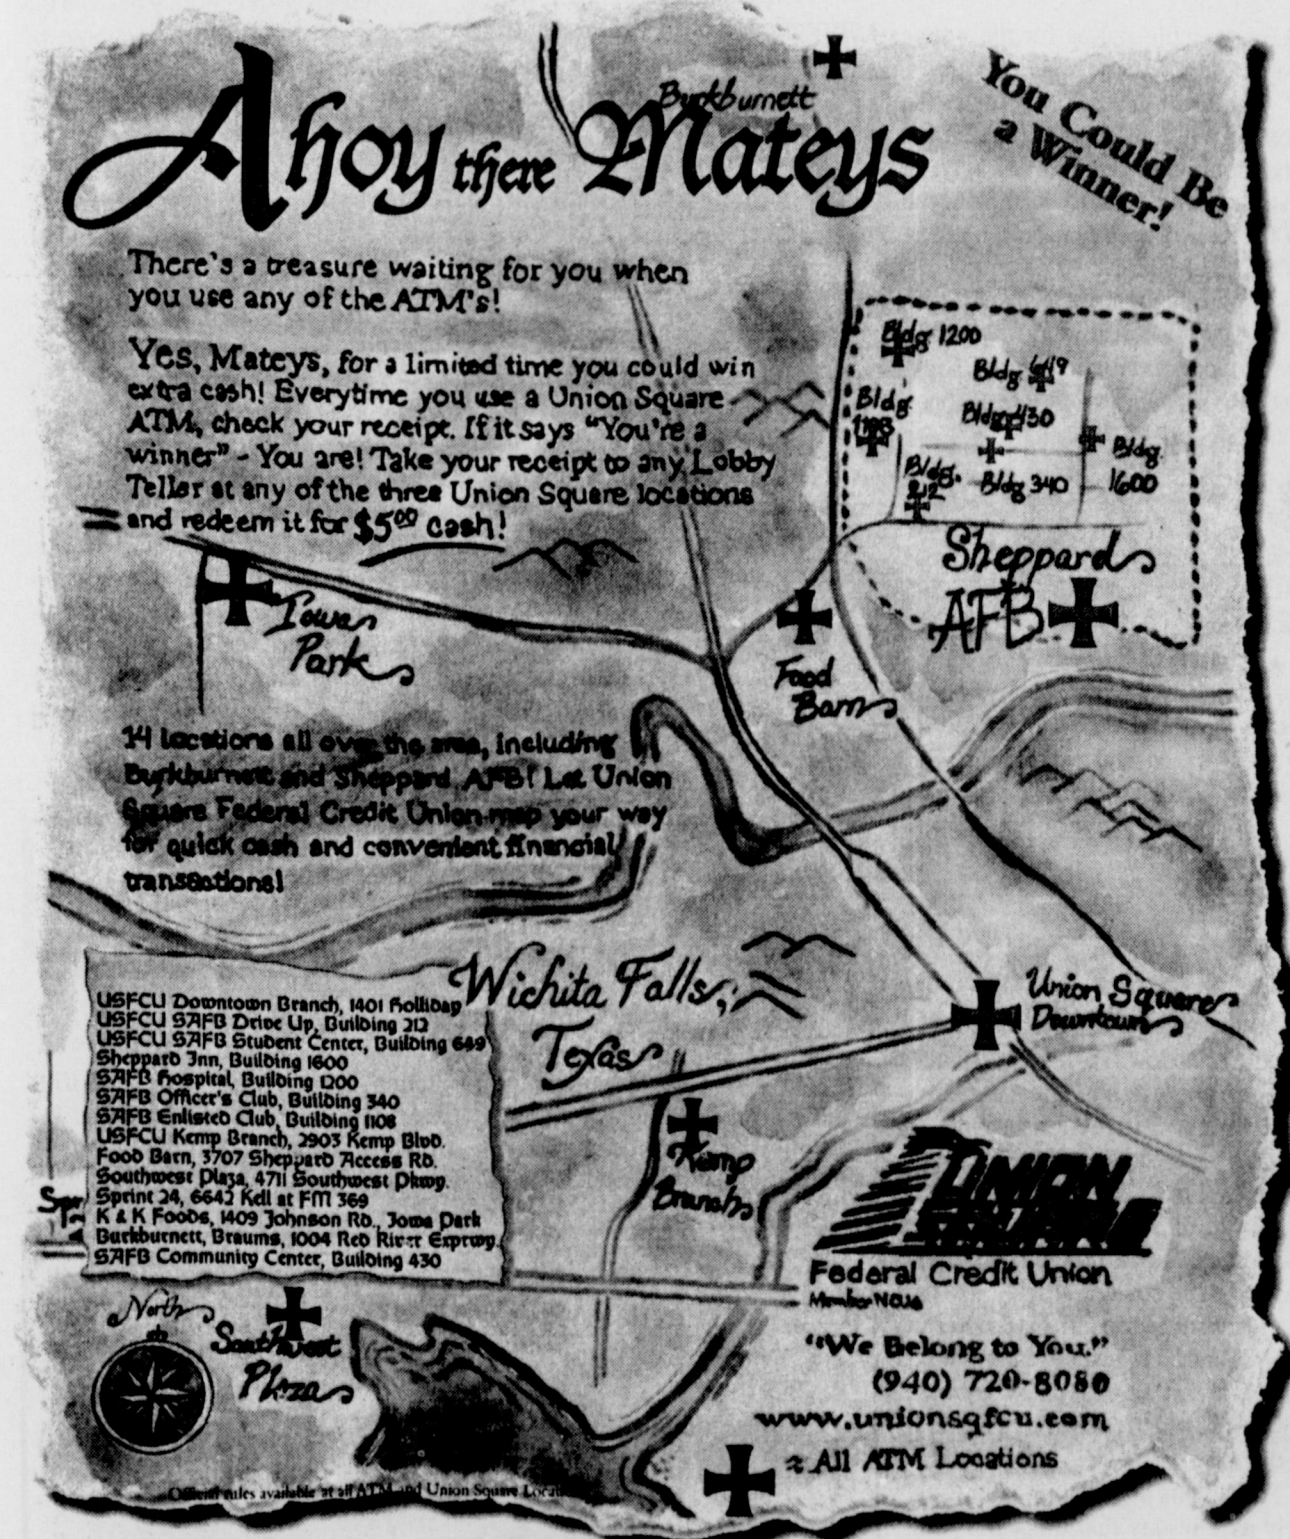 Burkburnett
Ahoy there Mateys
You Could Be
a Winner!
There's a treasure waiting for you when
you use any of the ATM's!
Yes, Mateys, for a limited time you could win
extra cash! Everytime you use a Union Square
ATM, check your receipt. If it says "You're a
winner" - You are! Take your receipt to any Lobby
Teller at any of the three Union Square locations
and redeem it for $5⁰⁰ cash!
Bldg 1200
Bldg 649
Bldg
Bldg 430
Bldg.
1600
Bldg.
212
Bldg 340
Sheppard
AFB
Iowa
Park
Food
Barn
14 locations all over the area, including
Burkburnett and Sheppard AFB! Let Union
Square Federal Credit Union map your way
for quick cash and convenient financial
transactions!
Wichita Falls,
Texas
Union Square
Downtown
USFCU Downtown Branch, 1401 Holliday
USFCU SAFB Drive Up, Building 212
USFCU SAFB Student Center, Building 649
Sheppard Inn, Building 1600
SAFB Hospital, Building 1200
SAFB Officer's Club, Building 340
SAFB Enlisted Club, Building 1108
USFCU Kemp Branch, 2903 Kemp Blvd.
Food Barn, 3707 Sheppard Access Rd.
Southwest Plaza, 4711 Southwest Pkwy.
Sprint 24, 6642 Kell at FM 369
K & K Foods, 1409 Johnson Rd., Iowa Park
Burkburnett, Braums, 1004 Red River Exprwy.
SAFB Community Center, Building 430
Kemp
Branch
UNION
SQUARE
Federal Credit Union
Member NCUA
North
Southwest
Plaza
"We Belong to You."
(940) 720-8080
www.unionsqfcu.com
= All ATM Locations
Official rules available at all ATM and Union Square